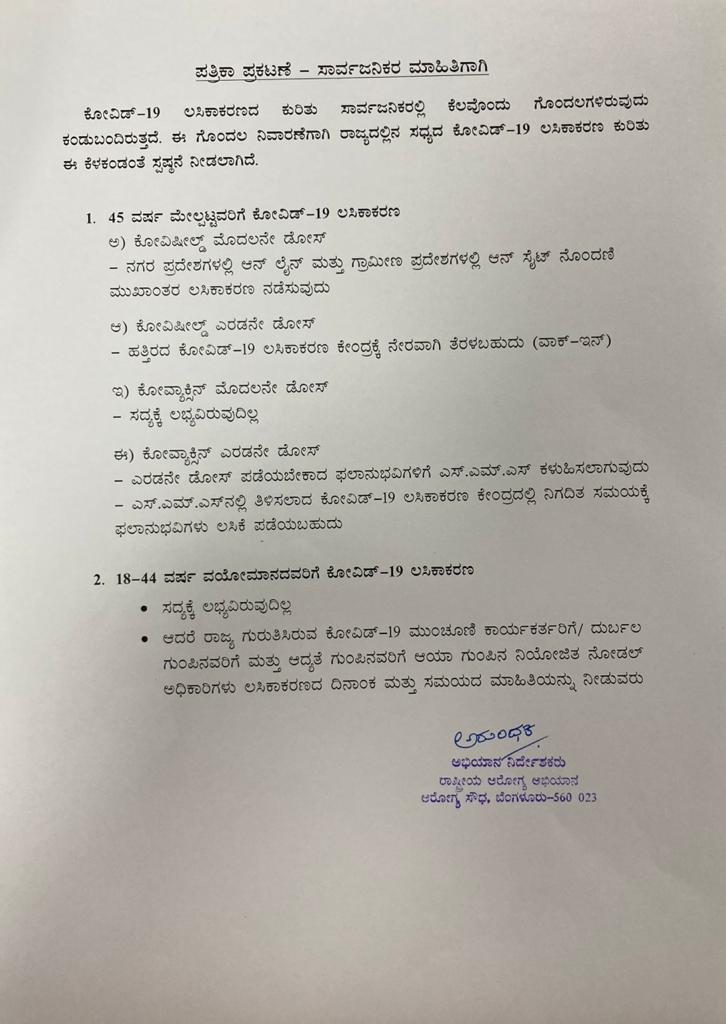 ಪತ್ರಿಕಾ ಪ್ರಕಟಣೆ – ಸಾರ್ವಜನಿಕರ ಮಾಹಿತಿಗಾಗಿ
ಕೋವಿಡ್–19 ಲಸಿಕಾಕರಣದ ಕುರಿತು ಸಾರ್ವಜನಿಕರಲ್ಲಿ ಕೆಲವೊಂದು ಗೊಂದಲಗಳಿರುವುದು
ಕಂಡುಬಂದಿರುತ್ತದೆ. ಈ ಗೊಂದಲ ನಿವಾರಣೆಗಾಗಿ ರಾಜ್ಯದಲ್ಲಿನ ಸಧ್ಯದ ಕೋವಿಡ್–19 ಲಸಿಕಾಕರಣ ಕುರಿತು
ಈ ಕೆಳಕಂಡಂತೆ ಸ್ಪಷ್ಠನೆ ನೀಡಲಾಗಿದೆ.
1. 45 ವರ್ಷ ಮೇಲ್ಪಟ್ಟವರಿಗೆ ಕೋವಿಡ್–19 ಲಸಿಕಾಕರಣ
ಅ) ಕೋವಿಷೀಲ್ಡ್ ಮೊದಲನೇ ಡೋಸ್
– ನಗರ ಪ್ರದೇಶಗಳಲ್ಲಿ ಆನ್ ಲೈನ್ ಮತ್ತು ಗ್ರಾಮೀಣ ಪ್ರದೇಶಗಳಲ್ಲಿ ಆನ್ ಸೈಟ್ ನೊಂದಣಿ
ಮುಖಾಂತರ ಲಸಿಕಾಕರಣ ನಡೆಸುವುದು
ಆ) ಕೋವಿಷೀಲ್ಡ್ ಎರಡನೇ ಡೋಸ್
– ಹತ್ತಿರದ ಕೋವಿಡ್–19 ಲಸಿಕಾಕರಣ ಕೇಂದ್ರಕ್ಕೆ ನೇರವಾಗಿ ತೆರಳಬಹುದು (ವಾಕ್–ಇನ್)
ಇ) ಕೋವ್ಯಾಕ್ಸಿನ್ ಮೊದಲನೇ ಡೋಸ್
– ಸದ್ಯಕ್ಕೆ ಲಭ್ಯವಿರುವುದಿಲ್ಲ
ಈ) ಕೋವ್ಯಾಕ್ಸಿನ್ ಎರಡನೇ ಡೋಸ್
– ಎರಡನೇ ಡೋಸ್ ಪಡೆಯಬೇಕಾದ ಫಲಾನುಭವಿಗಳಿಗೆ ಎಸ್.ಎಮ್.ಎಸ್ ಕಳುಹಿಸಲಾಗುವುದು
– ಎಸ್.ಎಮ್.ಎಸ್‌ನಲ್ಲಿ ತಿಳಿಸಲಾದ ಕೋವಿಡ್–19 ಲಸಿಕಾಕರಣ ಕೇಂದ್ರದಲ್ಲಿ ನಿಗದಿತ ಸಮಯಕ್ಕೆ
ಫಲಾನುಭವಿಗಳು ಲಸಿಕೆ ಪಡೆಯಬಹುದು
2. 18–44 ವರ್ಷ ವಯೋಮಾನದವರಿಗೆ ಕೋವಿಡ್–19 ಲಸಿಕಾಕರಣ
• ಸದ್ಯಕ್ಕೆ ಲಭ್ಯವಿರುವುದಿಲ್ಲ
• ಆದರೆ ರಾಜ್ಯ ಗುರುತಿಸಿರುವ ಕೋವಿಡ್–19 ಮುಂಚೂಣಿ ಕಾರ್ಯಕರ್ತರಿಗೆ/ ದುರ್ಬಲ
ಗುಂಪಿನವರಿಗೆ ಮತ್ತು ಆದ್ಯತೆ ಗುಂಪಿನವರಿಗೆ ಆಯಾ ಗುಂಪಿನ ನಿಯೋಜಿತ ನೋಡಲ್
ಅಧಿಕಾರಿಗಳು ಲಸಿಕಾಕರಣದ ದಿನಾಂಕ ಮತ್ತು ಸಮಯದ ಮಾಹಿತಿಯನ್ನು ನೀಡುವರು
ಅಭಿಯಾನ ನಿರ್ದೇಶಕರು
ರಾಷ್ಟ್ರೀಯ ಆರೋಗ್ಯ ಅಭಿಯಾನ
ಆರೋಗ್ಯ ಸೌಧ, ಬೆಂಗಳೂರು–560 023